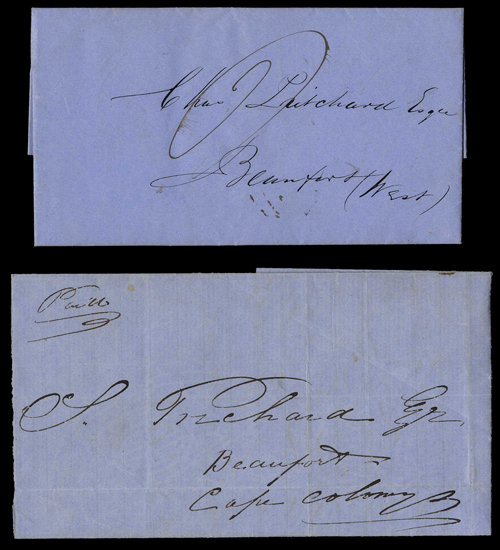 Chas Pritchard Esqre
Beaufort (West)
Paid
S. Trichard Esqr
Beaufort
Cape Colony